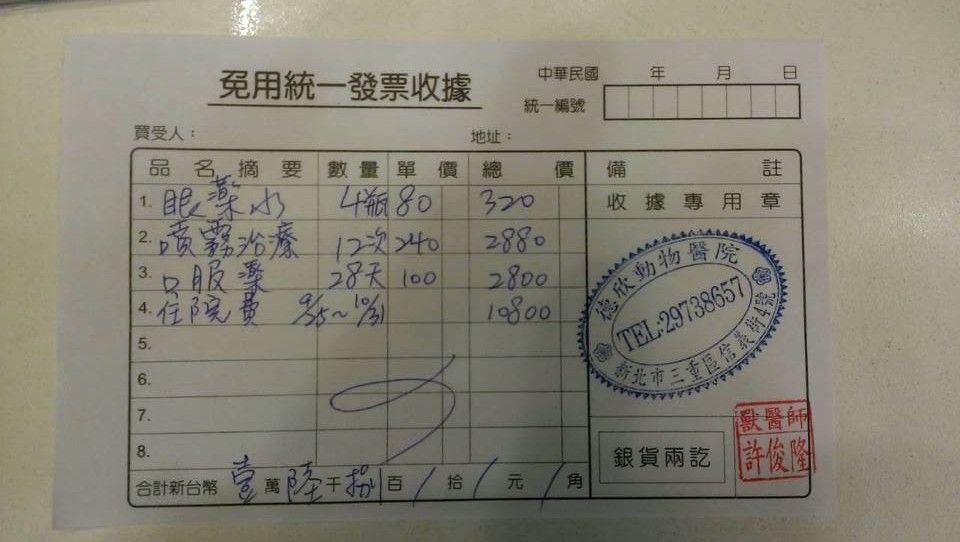 免用統一發票收據
中華民國 年 月 日
統一編號
買受人： 地址：
品名摘要 數量 單價 總價 備註
收據專用章
1. 眼藥水 4瓶 80 320
2. 噴霧治療 12次 240 2880
3. 口服藥 28天 100 2800
4. 住院費 9/5~10/31 10800
5.
6.
7.
8.
德欣動物醫院
TEL:29738657
新北市三重區信義街4號
銀貨兩訖
獸醫師
許俊隆
合計新台幣 壹萬陸千捌百/拾/元/角